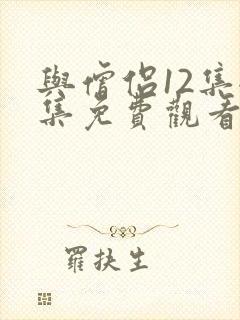 與僧侶12集
集免費觀看
羅扶生